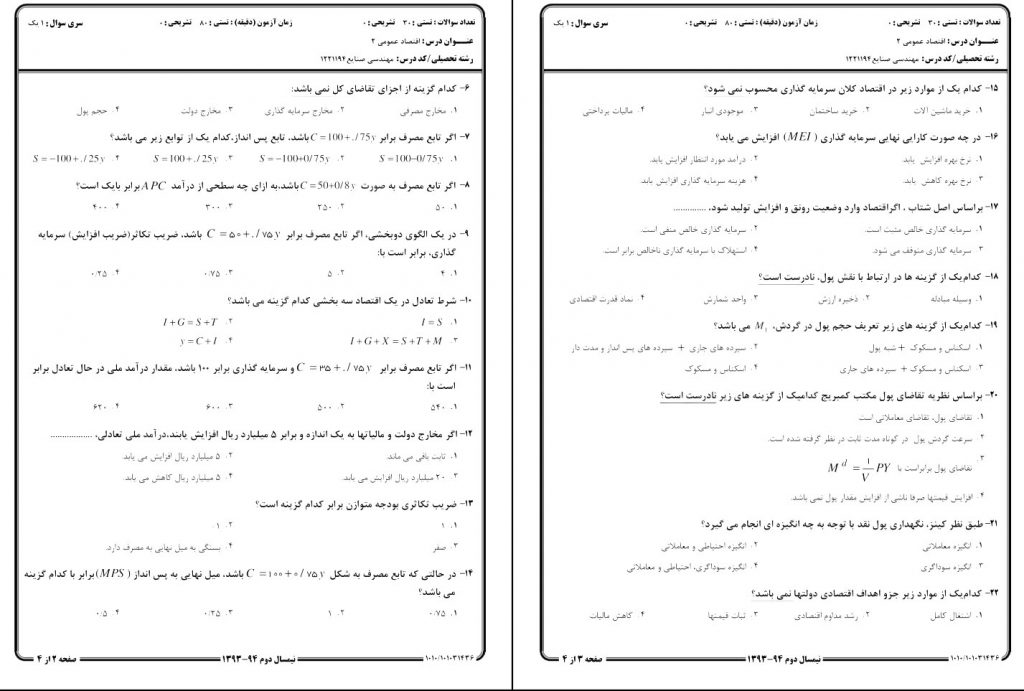 سری سوال : ۱ یک
زمان آزمون (دقیقه) : تستی : ۸۰ تشریحی : ۰
تعداد سوالات : تستی : ۳۰ تشریحی : ۰
عنـــوان درس : اقتصاد عمومی ۲
رشته تحصیلی/کد درس : مهندسی صنایع ۱۲۲۱۱۹۴
۶- کدام گزینه از اجزای تقاضای کل نمی باشد:
۱. مخارج مصرفی ۲. مخارج سرمایه گذاری ۳. مخارج دولت ۴. حجم پول
۷- اگر تابع مصرف برابر C = 100 + ./75y باشد، تابع پس انداز،کدام یک از توابع زیر می باشد؟
۱. S = 100-0/75y ۲. S = -100+0/75y ۳. S = 100+./25y ۴. S = -100+./25y
۸- اگر تابع مصرف به صورت C = 50+0/8y باشد،به ازای چه سطحی از درآمد APC برابر بایک است؟
۱. ۵۰ ۲. ۲۵۰ ۳. ۳۰۰ ۴. ۴۰۰
۹- در یک الگوی دوبخشی، اگر تابع مصرف برابر C = ۵۰ + ./۷۵y باشد، ضریب تکاثر(ضریب افزایش) سرمایه
گذاری، برابر است با:
۱. ۴ ۲. ۵ ۳. ۰/۷۵ ۴. ۰/۲۵
۱۰- شرط تعادل در یک اقتصاد سه بخشی کدام گزینه می باشد؟
۱. I = S ۲. I + G = S + T
۳. I + G + X = S + T + M ۴. y = C + I
۱۱- اگر تابع مصرف برابر C = ۳۵ + ./۷۵y و سرمایه گذاری برابر ۱۰۰ باشد، مقدار درآمد ملی در حال تعادل برابر
است با:
۱. ۵۴۰ ۲. ۵۰۰ ۳. ۶۰۰ ۴. ۶۲۰
۱۲- اگر مخارج دولت و مالیاتها به یک اندازه و برابر ۵ میلیارد ریال افزایش یابند،درآمد ملی تعادلی، ..................
۱. ثابت باقی می ماند. ۲. ۵ میلیارد ریال افزایش می یابد
۳. ۲۰ میلیارد ریال افزایش می یابد. ۴. ۵ میلیارد ریال کاهش می یابد.
۱۳- ضریب تکاثری بودجه متوازن برابر کدام گزینه است؟
۱. ۱ ۲. ۱۰
۳. صفر ۴. بستگی به میل نهایی به مصرف دارد.
۱۴- در حالتی که تابع مصرف به شکل C = ۱۰۰ + ۰/۷۵y باشد، میل نهایی به پس انداز (MPS) برابر با کدام گزینه
می باشد؟
۱. ۰/۷۵ ۲. ۱ ۳. ۰/۲۵ ۴. ۰/۵
صفحه ۲ از ۴ نیمسال دوم ۹۴-۱۳۹۳ ۱۰۱۰/۱۰۱۰۳۱۴۳۶
سری سوال : ۱ یک
زمان آزمون (دقیقه) : تستی : ۸۰ تشریحی : ۰
تعداد سوالات : تستی : ۳۰ تشریحی : ۰
عنـــوان درس : اقتصاد عمومی ۲
رشته تحصیلی/کد درس : مهندسی صنایع ۱۲۲۱۱۹۴
۱۵- کدام یک از موارد زیر در اقتصاد کلان سرمایه گذاری محسوب نمی شود؟
۱. خرید ماشین آلات ۲. خرید ساختمان ۳. موجودی انبار ۴. مالیات پرداختی
۱۶- در چه صورت کارایی نهایی سرمایه گذاری (MEI) افزایش می یابد؟
۱. نرخ بهره افزایش یابد. ۲. درآمد مورد انتظار افزایش یابد.
۳. نرخ بهره کاهش یابد. ۴. هزینه سرمایه گذاری افزایش یابد.
۱۷- براساس اصل شتاب ، اگراقتصاد وارد وضعیت رونق و افزایش تولید شود، ..............
۱. سرمایه گذاری خالص مثبت است. ۲. سرمایه گذاری خالص منفی است.
۳. سرمایه گذاری متوقف می شود. ۴. استهلاک با سرمایه گذاری ناخالص برابر است.
۱۸- کدام‌یک از گزینه ها در ارتباط با نقش پول، نادرست است؟
۱. وسیله مبادله ۲. ذخیره ارزش ۳. واحد شمارش ۴. نماد قدرت اقتصادی
۱۹- کدام‌یک از گزینه های زیر تعریف حجم پول در گردش، M₁ می باشد؟
۱. اسکناس و مسکوک + شبه پول ۲. سپرده های جاری + سپرده های پس انداز و مدت دار
۳. اسکناس و مسکوک + سپرده های جاری ۴. اسکناس و مسکوک
۲۰- براساس نظریه تقاضای پول مکتب کمبریج کدامیک از گزینه های زیر نادرست است؟
۱. تقاضای پول، تقاضای معاملاتی است
۲. سرعت گردش پول در کوتاه مدت ثابت در نظر گرفته شده است.
۳. تقاضای پول برابراست با M^d = 1/V PY
۴. افزایش قیمتها صرفا ناشی از افزایش مقدار پول نمی باشد.
۲۱- طبق نظر کینز، نگهداری پول نقد با توجه به چه انگیزه ای انجام می گیرد؟
۱. انگیزه معاملاتی ۲. انگیزه احتیاطی و معاملاتی
۳. انگیزه سوداگری ۴. انگیزه سوداگری، احتیاطی و معاملاتی
۲۲- کدام‌یک از موارد زیر جزو اهداف اقتصادی دولتها نمی باشد؟
۱. اشتغال کامل ۲. رشد مداوم اقتصادی ۳. ثبات قیمتها ۴. کاهش مالیات
صفحه ۳ از ۴ نیمسال دوم ۹۴-۱۳۹۳ ۱۰۱۰/۱۰۱۰۳۱۴۳۶